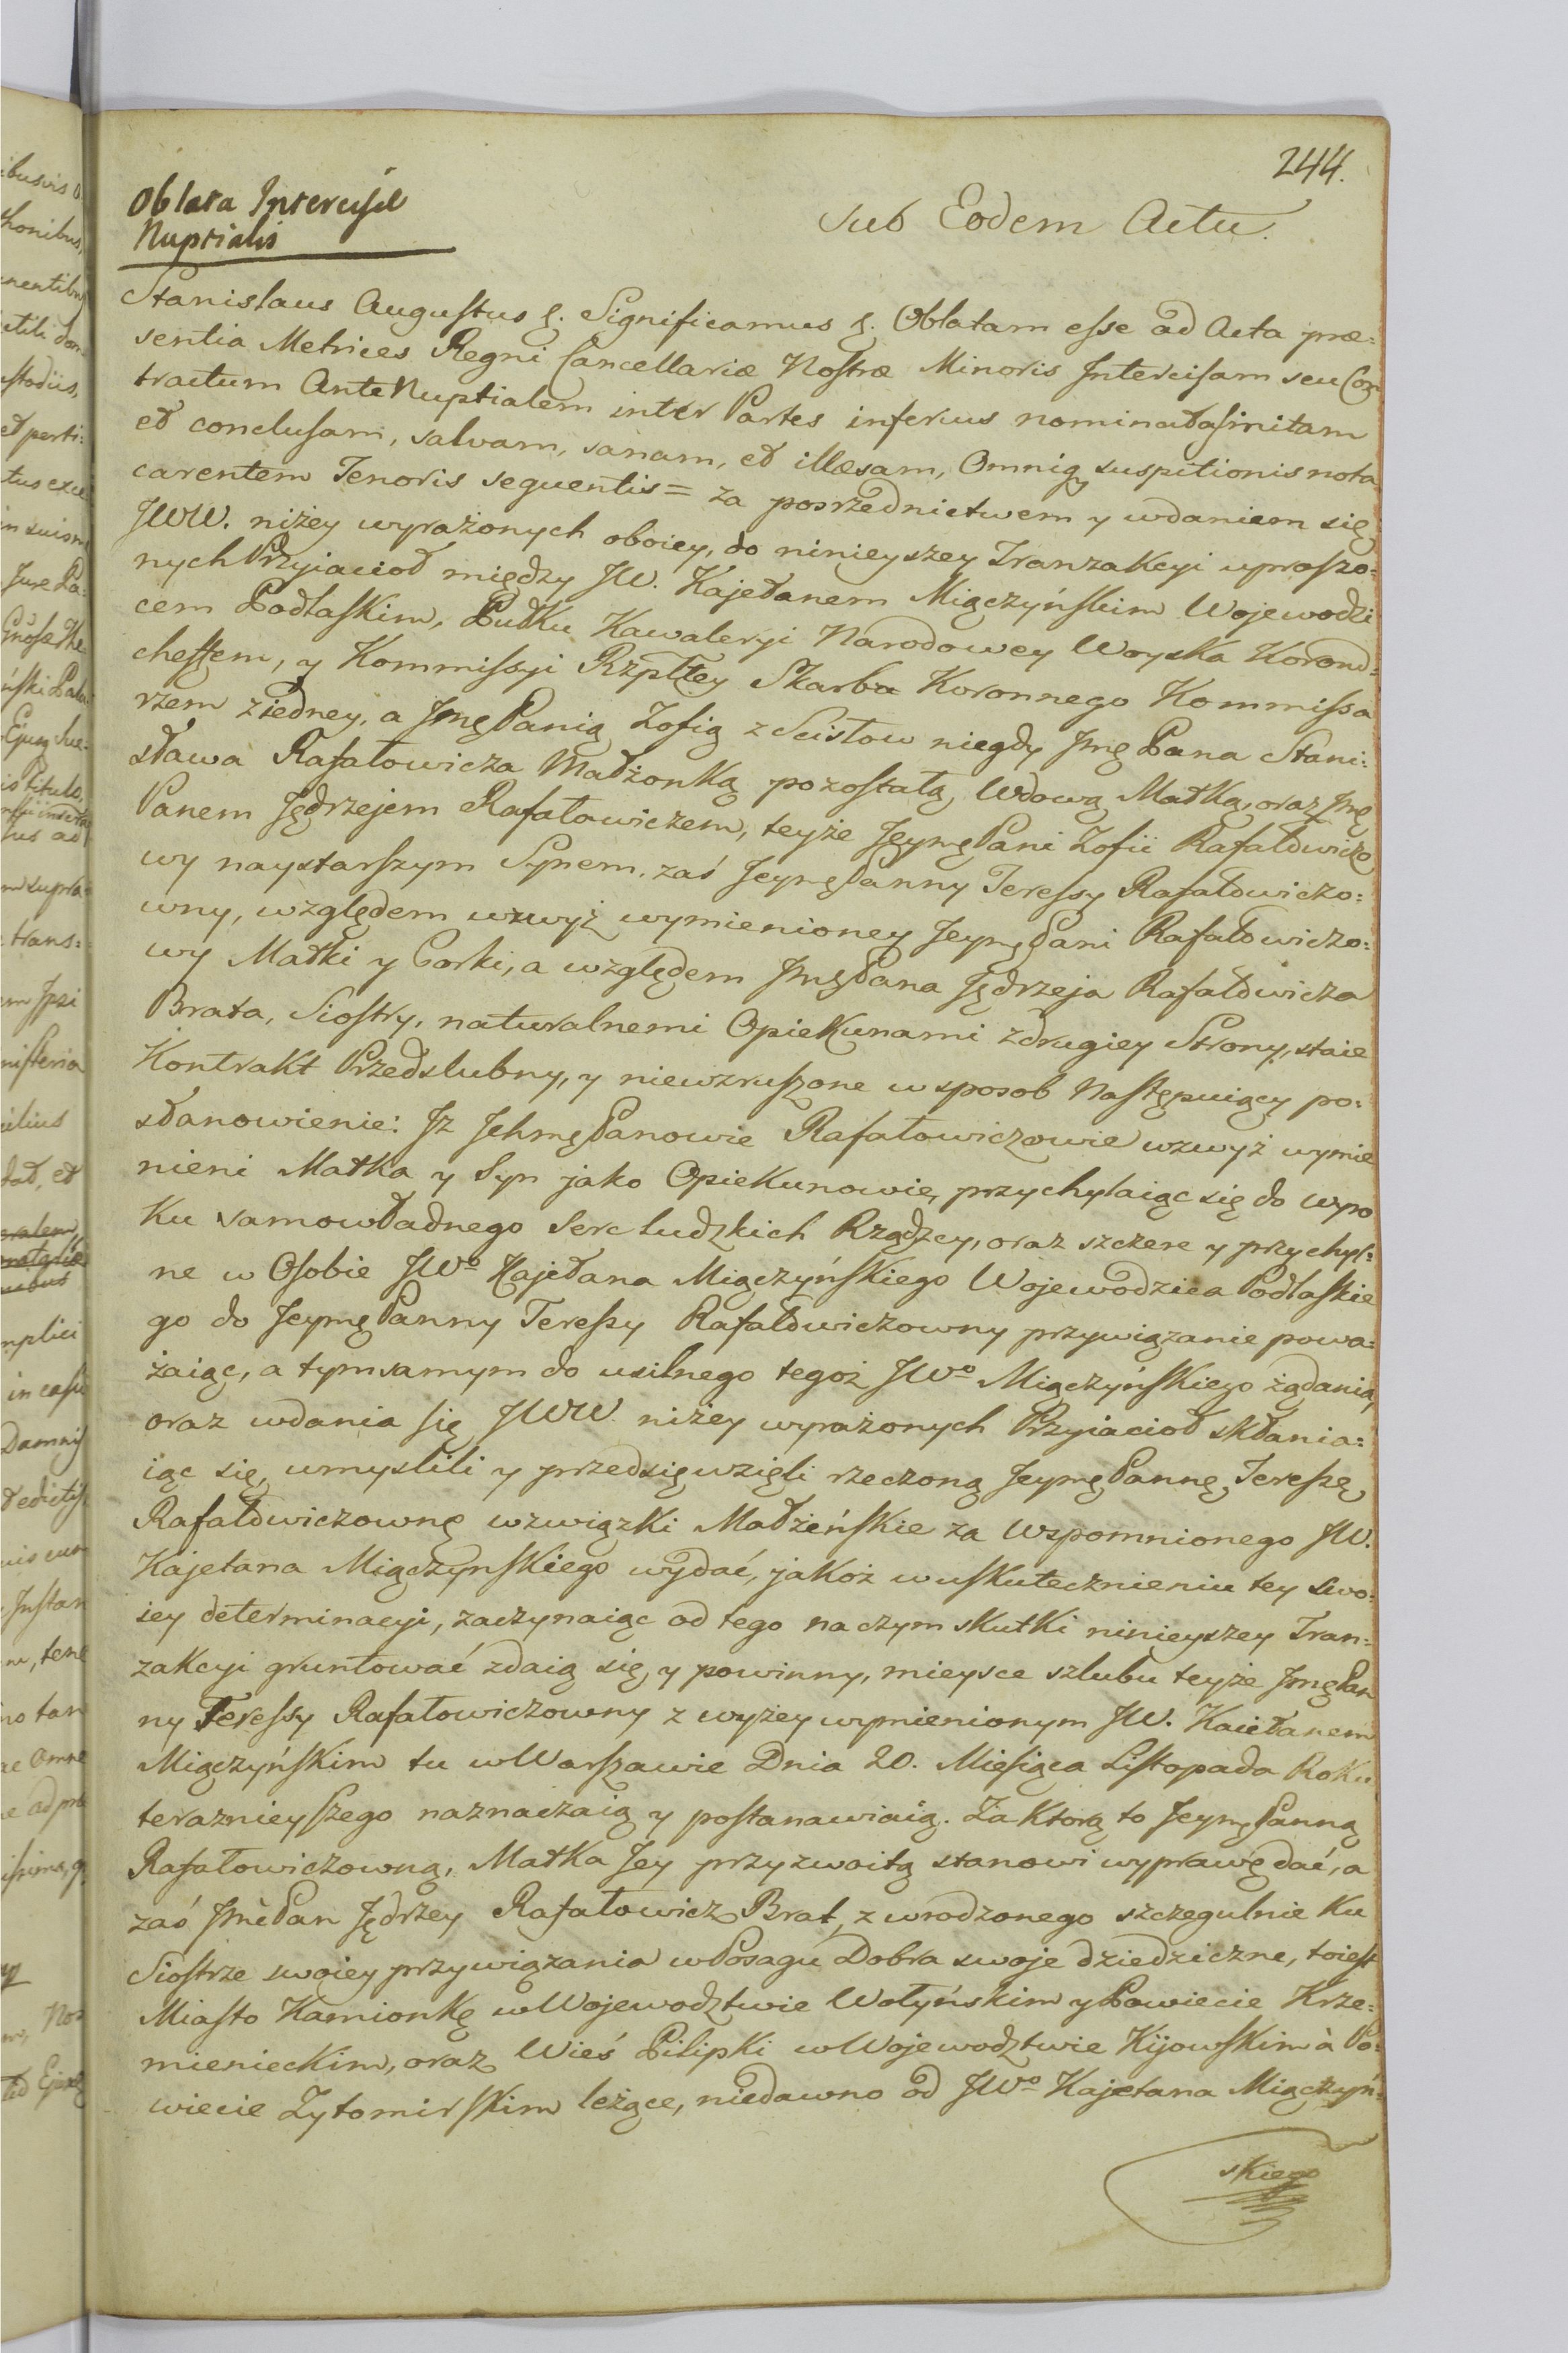 244.
Oblata Intercisæ
Nuptialis
Sub Eodem Actu.
Stanislaus Augustus &. Significamus &. Oblatam esse ad Acta præ=
sentia Metrices Regni Cancellariæ Nostræ Minoris Intercisam seu Con
tractum AnteNuptialem inter Partes inferius nominatas initam
et conclusam, salvam, sanam, et illæsam, Omniq suspitionis nota
carentem Tenoris sequentis = za posrzednictwem y wdaniem się
JWW. niżey wyrażonych oboiey, do ninieyszey Tranzakcyi uproszo=
nych Przyiacioł między JW. Kajetanem Miączyńskim Wojewodzi
cem Podlaskim, Pułku Kawaleryi Narodowey Woyska Koronn=
cheffem, y Kommissyi Rzpltey Skarbu Koronnego Kommissa
rzem z iedney, a JmęPanią Zofią z Scisłow niegdy Jmę Pana Stani=
sława Rafałowicza Małżonką pozostałą, Wdową Matką, oraz Jmę
Panem Jędrzejem Rafałowiczem, teyże JeymęPani Zofii Rafałowiczo
wy naystarszym Synem, zaś JeymęPanny Teressy Rafałowiczo=
wny, względem wzwyż wymienioney JeymęPani Rafałowiczo=
wy Matki y Corki, a względem JmęPana Jędrzeja Rafałowicza
Brata, Siostry, naturalnemi Opiekunami z drugiey Strony, staie
Kontrakt Przedslubny, y niewzruszone w sposob Następuiący po=
stanowienie: Iz JchmęPanowie Rafałowiczowie wzwyż wymie
nieni Matka y Syn jako Opiekunowie, przychylaiąc się do wyro
ku samowładnego Serc ludzkich Rządzcy, oraz szczere y przychyl=
ne w Osobie JWo Kajetana Miączyńskiego Wojewodzica Podlaskie
go do JeymęPanny Teressy Rafałowiczowny przywiązanie powa=
żaiąc, a tym samym do usilnego tegoż JWo Miączyńskiego żądania,
oraz wdania się JWW. niżey wyrażonych Przyiacioł skłania=
iąc się, umyslili y przedsięwzięli rzeczoną JeymęPannę Teressę
Rafałowiczownę w związki Małżeńskie za Wspomnionego JW.
Kajetana Miączynskiego wydać, jakoż w uskutecznieniu tey swo=
iey determinacyi, zaczynaiąc od tego na czym skutki ninieyszey Tran=
zakcyi gruntować zdaią się, y powinny, mieysce szlubu teyże JmęPan
ny Teressy Rafałowiczowny z wyżey wymienionym JW. Kaietanem
Miączyńskim tu w Warszawie Dnia 20. Miesiąca Listopada Roku
teraznieyszego naznaczaią y postanawiaią. Za Ktorą to JeymęPanną
Rafałowiczowną, Matka Jey przyzwoitą stanowi wyprawę dać, a
zaś JmćPan Jędrzey Rafałowicz Brat, z wrodzonego szczegulnie ku
Siostrze swoiey przywiązania w Posagu Dobra swoje dziedziczne, toiest
Miasto Kamionkę w Wojewodztwie Wołyńskim y Powiecie Krze=
mienieckim, oraz Wieś Pilipki w Wojewodztwie Kijowskim à Po=
wiecie Zytomirskim leżące, niedawno od JWo Kajetana Miączyń=
skiego